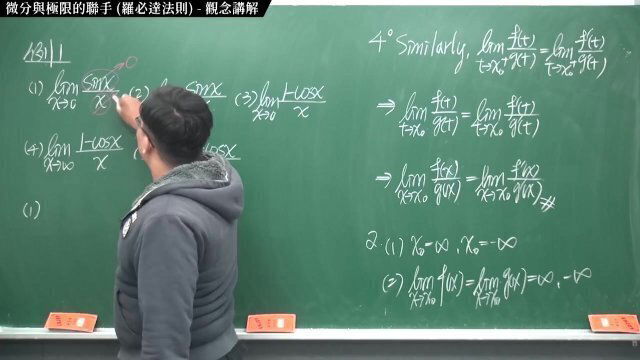 微分與極限的聯手 (羅必達法則) - 觀念講解
例 1
(1) lim x→0 sinx/x (2) sinx (3) lim x→0 1-cosx/x
(4) lim x→∞ 1-cosx/x cosx
(1)
4° Similarly, lim t→x₀⁺ f(t)/g(t) = lim t→x₀⁺ f'(t)/g'(t)
⇒ lim t→x₀ f(t)/g(t) = lim t→x₀ f'(t)/g'(t)
⇒ lim x→x₀ f(x)/g(x) = lim x→x₀ f'(x)/g'(x) #
2. (1) x₀=∞, x₀=-∞
(2) lim x→x₀ f(x) = lim x→x₀ g(x) = ∞, -∞